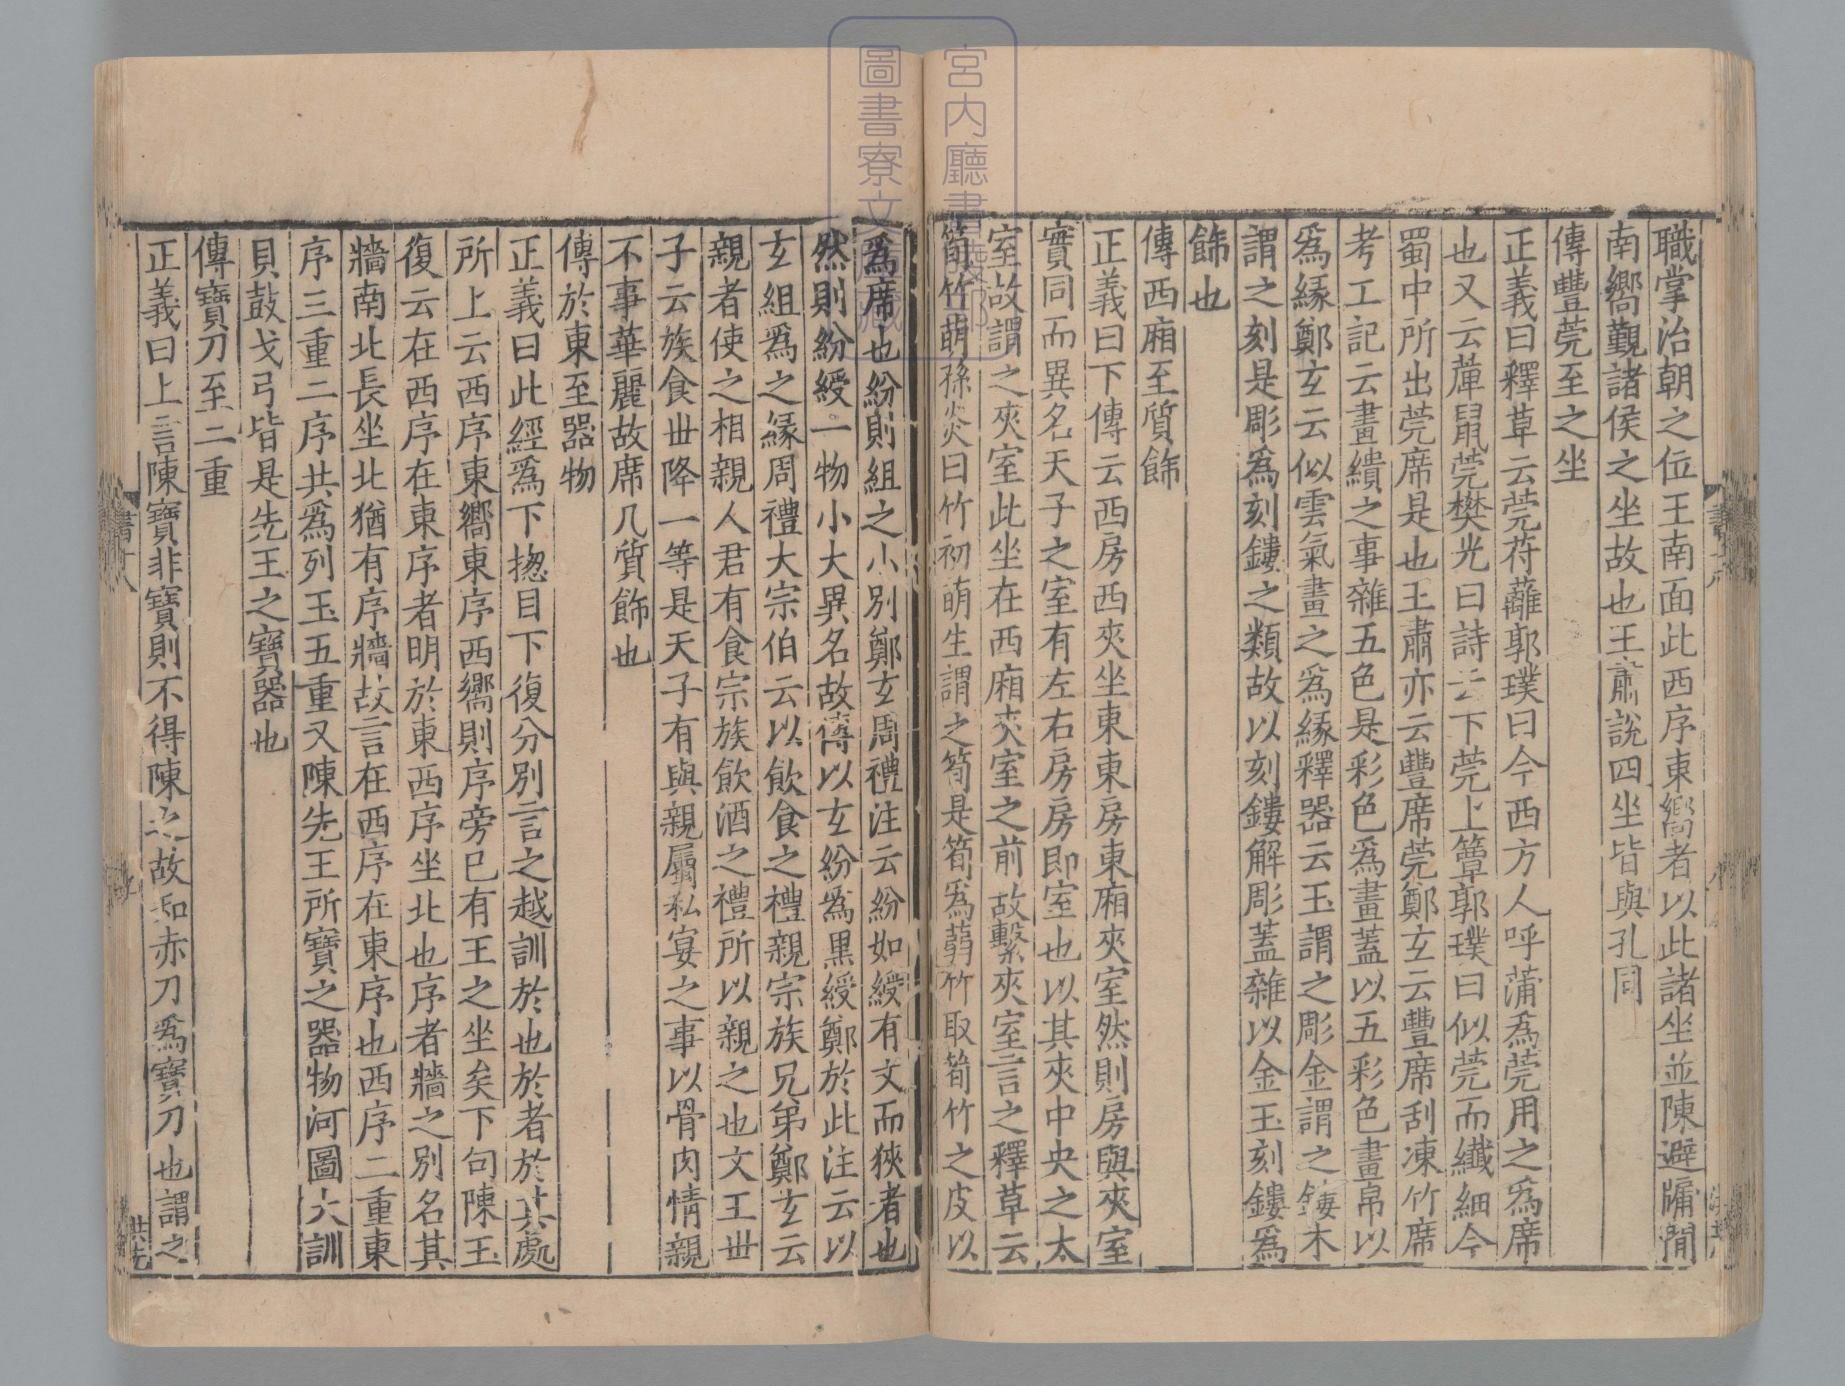 職掌治朝之位王南面此西序東嚮者以此諸坐並陳避牖閒
南嚮覲諸侯之坐故也王肅說四坐皆與孔同
傳豐莞至之坐
正義曰釋草云莞苻蘺郭璞曰今西方人呼蒲爲莞用之爲席
也又云蓷鼠莞樊光曰詩云下莞上簟郭璞曰似莞而纖細今
蜀中所出莞席是也王肅亦云豐席莞鄭玄云豐席刮凍竹席
考工記云畫繢之事雜五色是彩色爲畫蓋以五彩色畫帛以
爲緣鄭玄云似雲氣畫之爲緣釋器云玉謂之彫金謂之鏤木
謂之刻是彫爲刻鏤之類故以刻鏤解彫蓋雜以金玉刻鏤爲
飾也
傳西廂至質飾
正義曰下傳云西房西夾坐東東房東廂夾室然則房與夾室
實同而異名天子之室有左右房房即室也以其夾中央之太
室故謂之夾室此坐在西廂夾室之前故繫夾室言之釋草云
筍竹萌孫炎曰竹初萌生謂之筍是筍爲蒻竹取筍竹之皮以
爲席也紛則組之小別鄭玄周禮注云紛如綬有文而狹者也
然則紛綬一物小大異名故傳以玄紛爲黑綬鄭於此注云以
玄組爲之緣周禮大宗伯云以飲食之禮親宗族兄弟鄭玄云
親者使之相親人君有食宗族飲酒之禮所以親之也文王世
子云族食世降一等是天子有與親屬私宴之事以骨肉情親
不事華麗故席几質飾也
傳於東至器物
正義曰此經爲下揔目下復分別言之越訓於也於者於其處
所上云西序東嚮東序西嚮則序旁已有王之坐矣下句陳玉
復云在西序在東序者明於東西序坐北也序者牆之別名其
牆南北長坐北猶有序牆故言在西序在東序也西序二重東
序三重二序共爲列玉五重又陳先王所寶之器物河圖大訓
貝鼓戈弓皆是先王之寶器也
傳寶刀至二重
正義曰上言陳寶非寶則不得陳之故知赤刀爲寶刀也謂之
書十八
九
洪先
宮内廳書陵部
圖書寮文庫藏